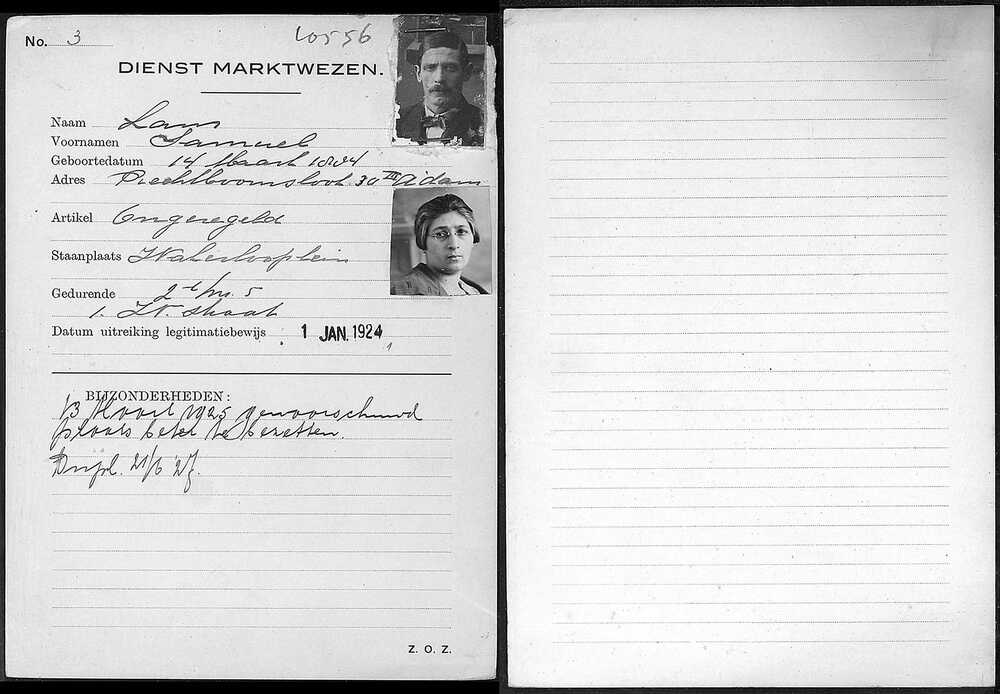 No. 3 10556
DIENST MARKTWEZEN.
Naam Lam
Voornamen Samuel
Geboortedatum 14 Maart 1884
Adres Rechtboomsloot 30 III A'dam
Artikel Ongeregeld
Staanplaats Waterlooplein
Gedurende 2e
1.
Datum uitreiking legitimatiebewijs 1 JAN. 1924
BIJZONDERHEDEN:
13 Maart 1925 gewaarschuwd
plaats beter te bezetten.
Dupl. 21/6 '27.
Z. O. Z.